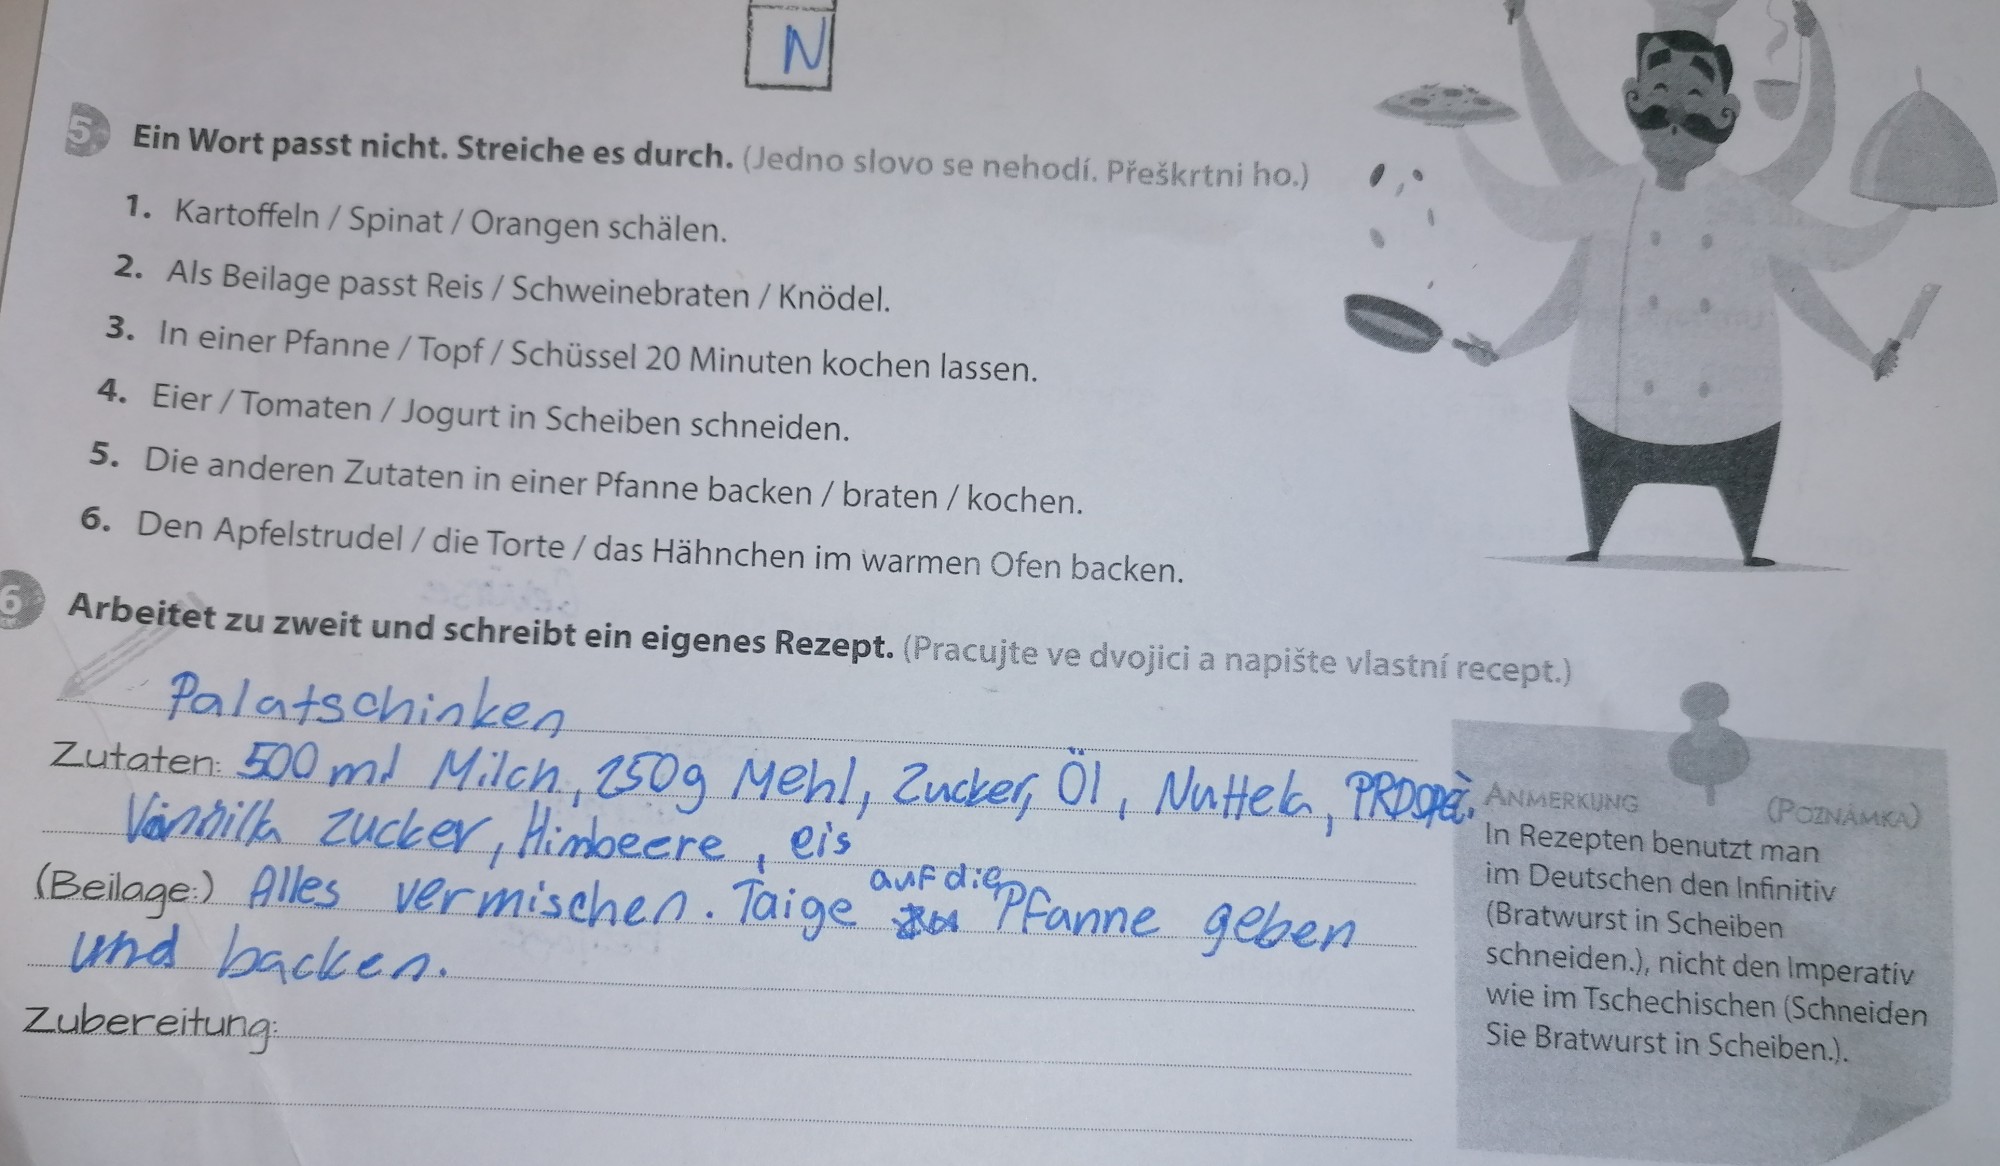 N
5 Ein Wort passt nicht. Streiche es durch. (Jedno slovo se nehodí. Přeškrtni ho.)
1. Kartoffeln / Spinat / Orangen schälen.
2. Als Beilage passt Reis / Schweinebraten / Knödel.
3. In einer Pfanne / Topf / Schüssel 20 Minuten kochen lassen.
4. Eier / Tomaten / Jogurt in Scheiben schneiden.
5. Die anderen Zutaten in einer Pfanne backen / braten / kochen.
6. Den Apfelstrudel / die Torte / das Hähnchen im warmen Ofen backen.
6 Arbeitet zu zweit und schreibt ein eigenes Rezept. (Pracujte ve dvojici a napište vlastní recept.)
Palatschinken
Zutaten: 500 ml Milch, 250g Mehl, Zucker, Öl, Nuttela,
zucker, Himbeere, eis
(Beilage:) Alles vermischen. Taige auf die Pfanne geben
und backen.
Zubereitung:
ANMERKUNG (POZNÁMKA)
In Rezepten benutzt man
im Deutschen den Infinitiv
(Bratwurst in Scheiben
schneiden.), nicht den Imperativ
wie im Tschechischen (Schneiden
Sie Bratwurst in Scheiben.).